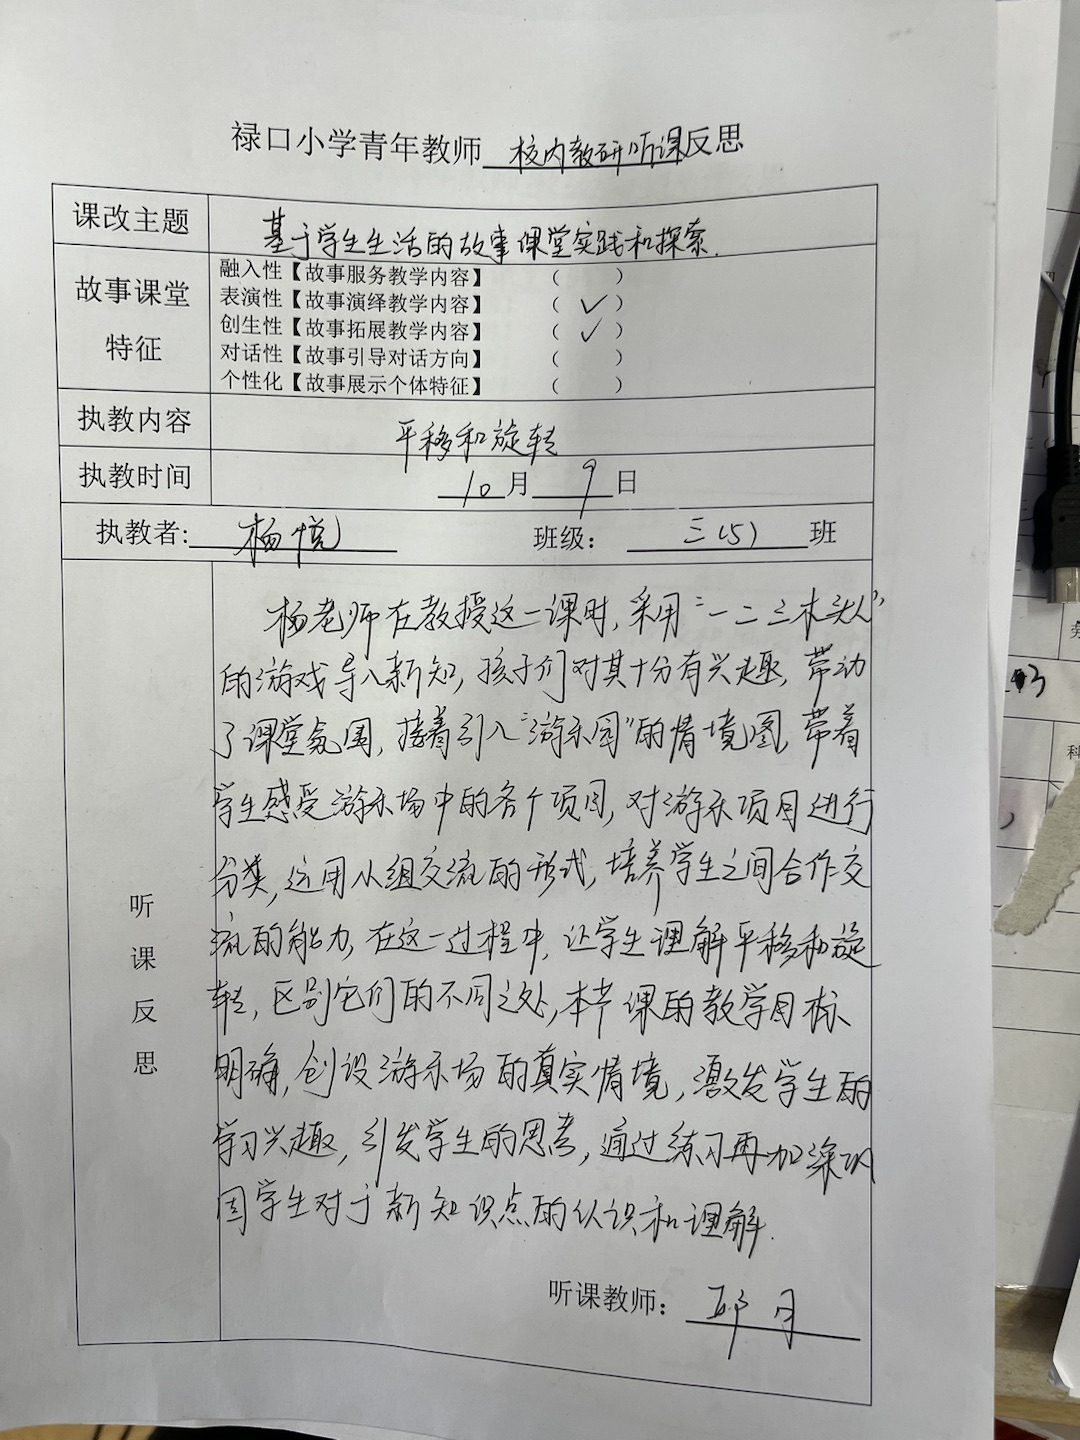 禄口小学青年教师 校内教研听课反思
课改主题 基于学生生活的故事课堂实践和探索.
故事课堂
特征
融入性【故事服务教学内容】 （ ）
表演性【故事演绎教学内容】 （ ✓ ）
创生性【故事拓展教学内容】 （ ✓ ）
对话性【故事引导对话方向】 （ ）
个性化【故事展示个体特征】 （ ）
执教内容 平移和旋转
执教时间 10 月 9 日
执教者: 杨悦 班级： 三（5） 班
听
课
反
思
杨老师在教授这一课时，采用“一二三木头人”
的游戏导入新知，孩子们对其十分有兴趣，带动
了课堂氛围，接着引入“游乐园”的情境图，带着
学生感受游乐场中的各个项目，对游乐项目进行
分类，运用小组交流的形式，培养学生之间合作交
流的能力，在这一过程中，让学生理解平移和旋
转，区别它们的不同之处，本节课的教学目标
明确，创设游乐场的真实情境，激发学生的
学习兴趣，引发学生的思考，通过练习再加深巩
固学生对于新知识点的认识和理解.
听课教师： 邱月
3